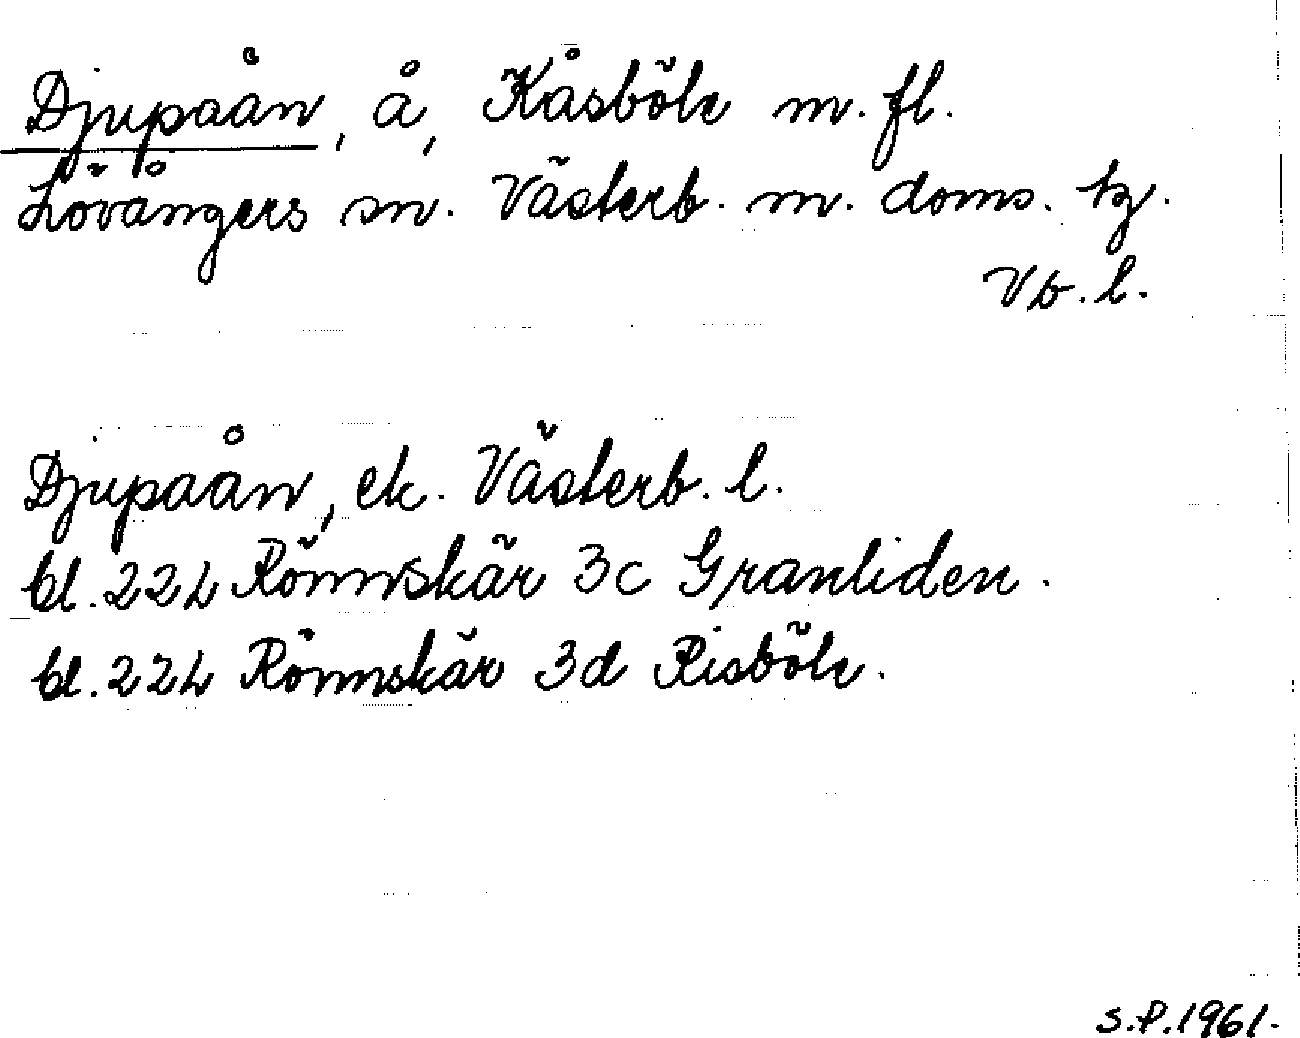 Djupaån, å, Kåsböle m. fl.
Lövångers sn. Västerb. m. doms. tg.
Vb. l.
Djupaån, ek. Västerb. l.
bl. 22L Rönnskär 3c Granliden.
bl. 22L Rönnskär 3d Risböle.
S.P. 1961.